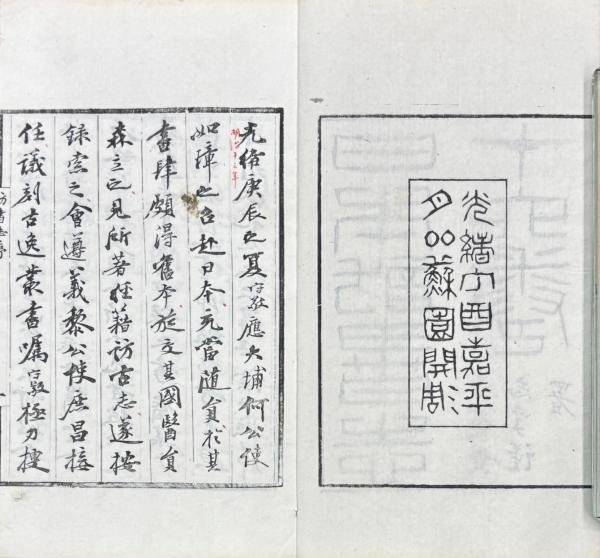 光緒丁酉嘉平
月鄰蘇園開雕
光緒庚辰之夏守敬應大埔何公使
明治十三年
如璋之召赴日本充當隨員於其
書肆頗得舊本旋交其國醫員
森立之見所著經籍訪古志遂按
錄索之會遵義黎公使庶昌接
任議刻古逸叢書囑守敬極力搜
訪書志序